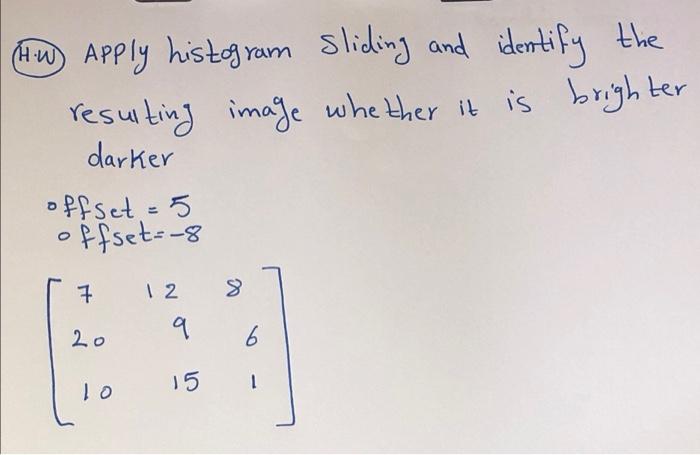 H.W Apply histogram sliding and identify the
resulting image whether it is brighter
darker
offset = 5
offset=-8
7 12 8
20 9 6
10 15 1